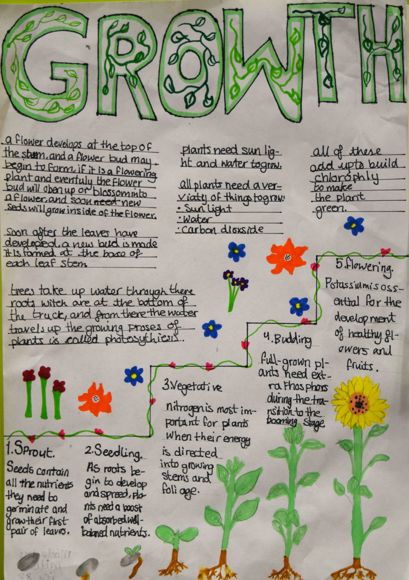 GROWTH
a flower develops at the top of
the stem, and a flower bud may
begin to form, if it is a flowering
plant and eventully the flower
bud will open up or blossom into
a flower, and soon need new
seds will grow inside of the flower.
soon after the leaves have
developed, a new bud is made
it is formed at the base of
each leaf stem
trees take up water through there
roots witch are at the bottom of
the truck, and from there the water
travels up the growing proses of
plants is called photosythiesis.
plants need sun lig-
ht and water to grow.
all plants need a ver-
viaty of things to grow
• Sun light
• Water
• Carbon dioxside
all of these
add up to build
chlorophly
to make
the plant
green.
1. Sprout.
Seeds contain
all the nutrients
they need to
germinate and
grow their first
pair of leaves.
2. Seedling.
As roots be-
gin to develop
and spread, pla-
nts need a boost
of absorbed well-
balanced nutrients.
3. Vegetative
nitrogen is most im-
portant for plants
when their energy
is directed
into growing
stems and
foliage.
4. Budding
full-grown pl-
ants need ext-
ra Phosphors
during the tra-
nsition to the
booming stage
5. flowering.
Potassium is ess-
ential for the
development
of healthy fl-
owers and
fruits.